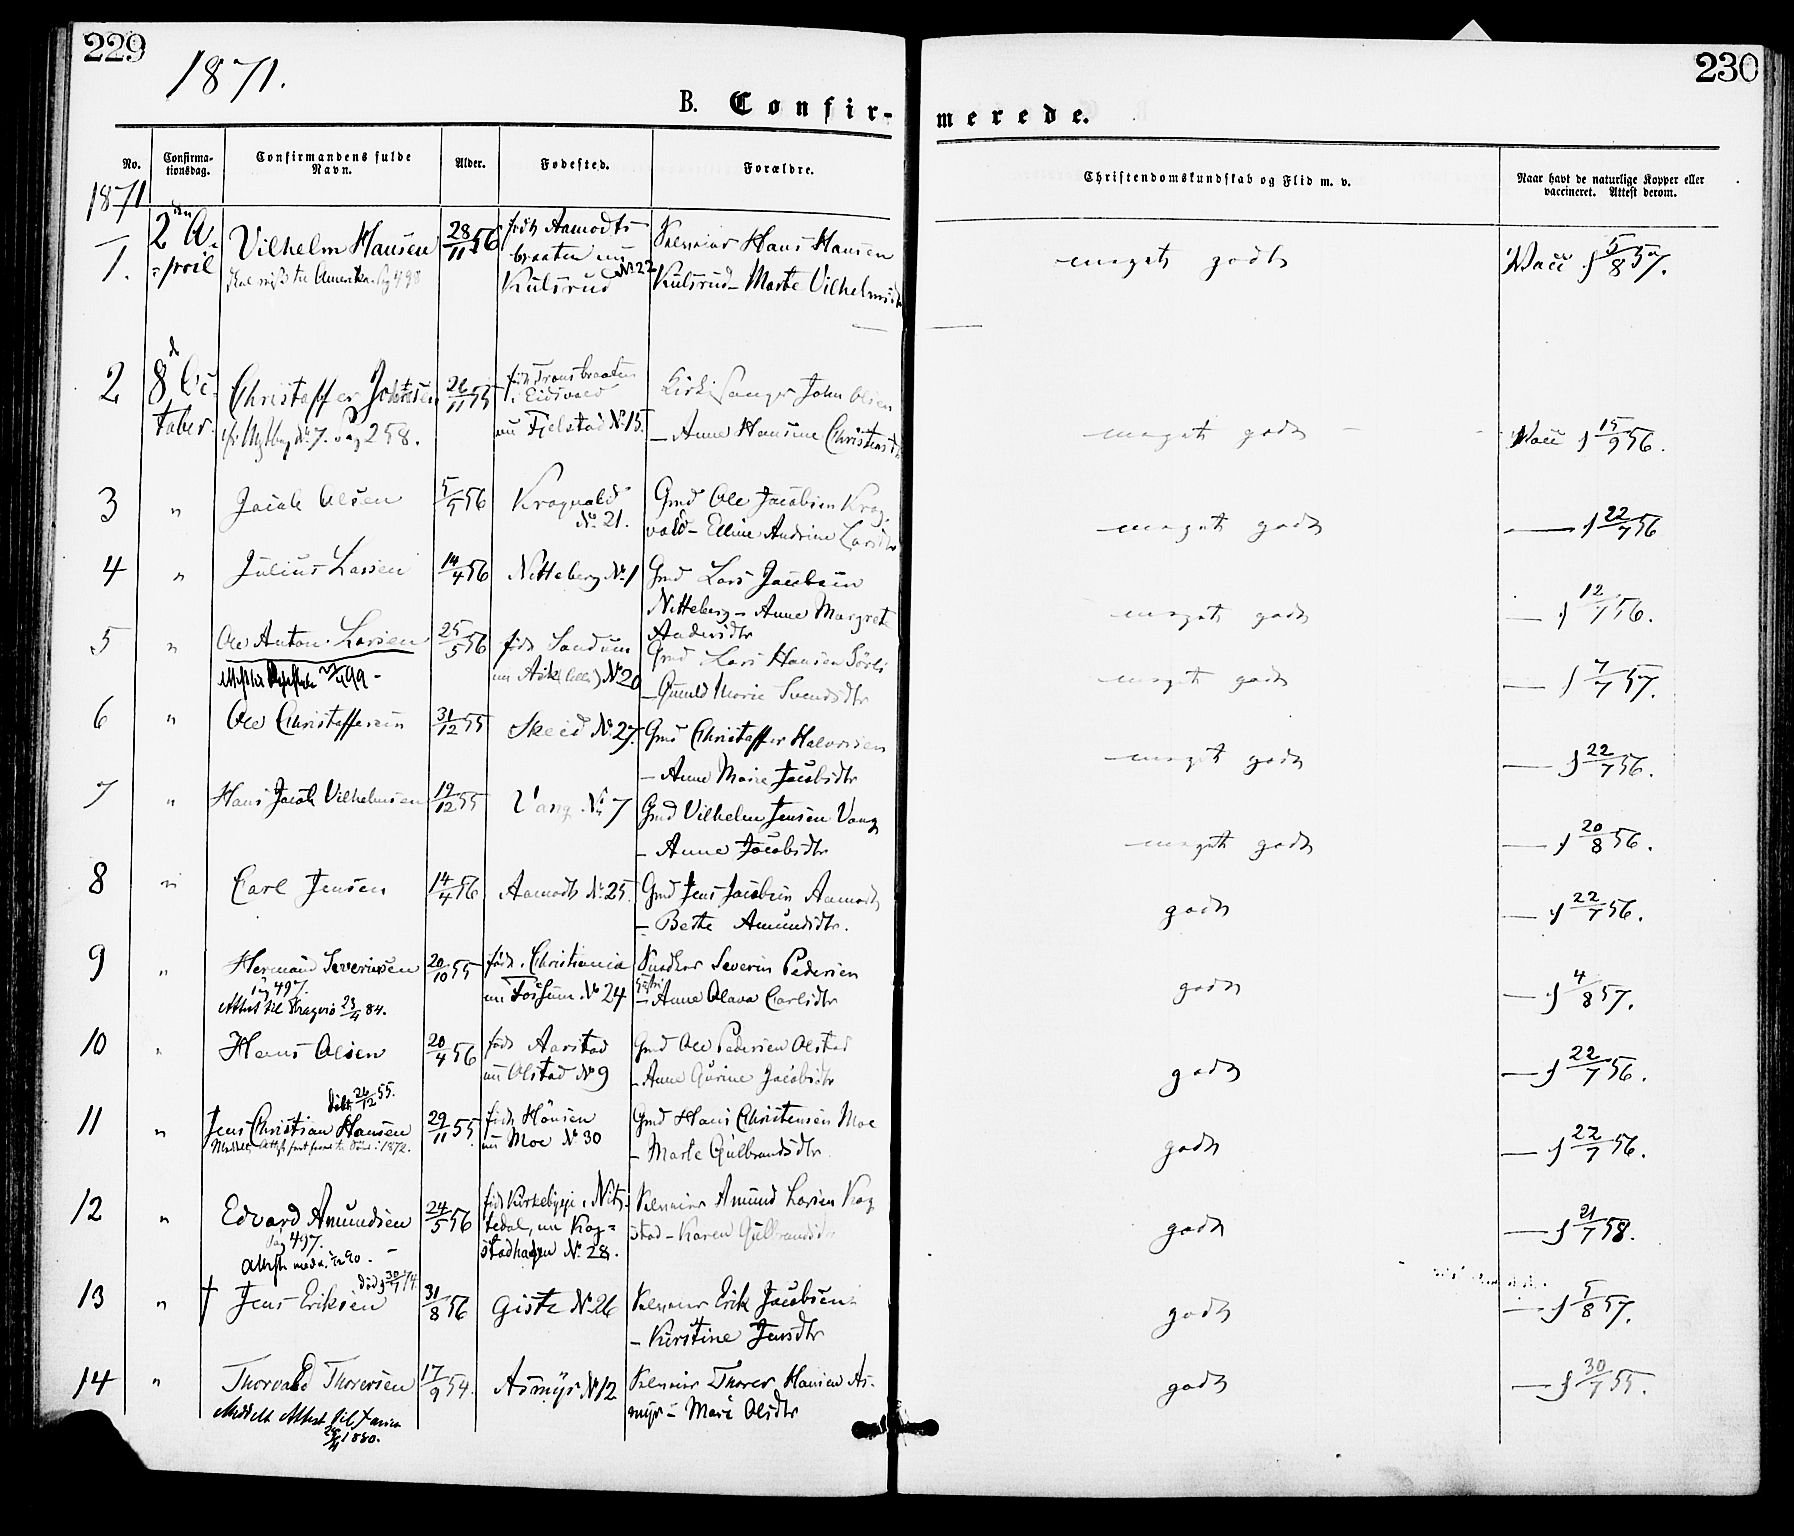 229
1871.
230
B. Confir-
merede.
No.
Confirma-
tionsdag.
Confirmandens fulde
Navn.
Alder.
Fødested.
Forældre.
Christendomskundskab og Flid m. v.
Naar havt de naturlige Kopper eller
vaccineret. Attest derom.
1871
1.
2den A-
pril
Vilhelm Hansen
28/11 56
født Aamodts-
braaten nu
Kulsrud No 22
Selveier Hans Hansen
Kulsrud - Marte Vilhelmsdtr
meget godt
Vacc 5/8 57.
2
8de Oc-
tober
Christoffer Johnsen
Pag 258.
11 55
Eidsvold
nu Fjelstad No 15.
Kirkesanger John Olsen
- Anne Hansine
meget godt
Vacc 15/9 56.
3
"
Jacob Olsen
5/5 56
Krogvold
No 21.
Gmd Ole Jacobsen Krog
vold - Elline Andrine Larsdtr
meget godt
22/7 56
4
"
Julius Larsen
14/4 56
Nitteberg No 1
Gmd Lars Jacobsen
Nitteberg - Anne Margrete
Andersdtr
meget godt
12/7 56.
5
"
Ole Anton Larsen
499 -
25/5 56
født Sandum
nu Ask No 20
Gmd Lars Hansen Sörli
- Gunild Marie Svendsdtr
meget godt
7/7 57.
6
"
Ole Christoffersen
31/12 55
Skeid No 27.
Gmd Christoffer Halvorsen
- Anne Marie Jacobsdtr
meget godt
22/7 56.
7
"
Hans Jacob Vilhelmsen
19/12 55
Vang No 7
Gmd Vilhelm Jensen Vang
- Anne Jacobsdtr
meget godt
20/8 56.
8
"
Carl Jensen
14/4 56
Aamodt No 25
Gmd Jens Jacobsen Aamodt
- Berthe Amundsdtr.
godt
22/7 56.
9
"
Herman Severinsen
Pag 497.
Attest til Kragerø 23/4 84.
20/10 55
født Christiania
nu Fossum No 24
Snedker Severin Pedersen
- Anne Olava Carlsdtr
godt
4/8 57.
10
"
Hans Olsen
20/4 56
født Aarstad
nu Olstad No 9
Gmd Ole Pedersen Olstad
- Anne Gurine Jacobsdtr
godt
22/7 56.
11
"
døbt 26/12 55.
Jens Christian Hansen
1872.
29/11 55.
født Hönsen
nu Moe No 30
Gmd Hans Christensen Moe
- Marte Gulbrandsdtr
godt
22/7 56.
12
"
Edvard Amundsen
Pag 497.
24/5 56
født Kirkebyeje i Nitte-
dal, nu Rog-
stadhagen No 28.
Selveier Amund Larsen Rog
stad - Karen Gulbrandsdtr
godt
21/7 58.
13
"
død 30/7 74.
† Jens Eriksen
31/8 56
Giste No 26
Selveier Erik Jacobsen
- Kirstine Jensdtr
godt
5/8 57.
14
"
Thorvald Thorersen
Meddelt Attest
1880.
17/9 54.
Asmyr No 12
Selveier Thorer Hansen As-
myr - Mari Olsdtr
godt
30/7 55.